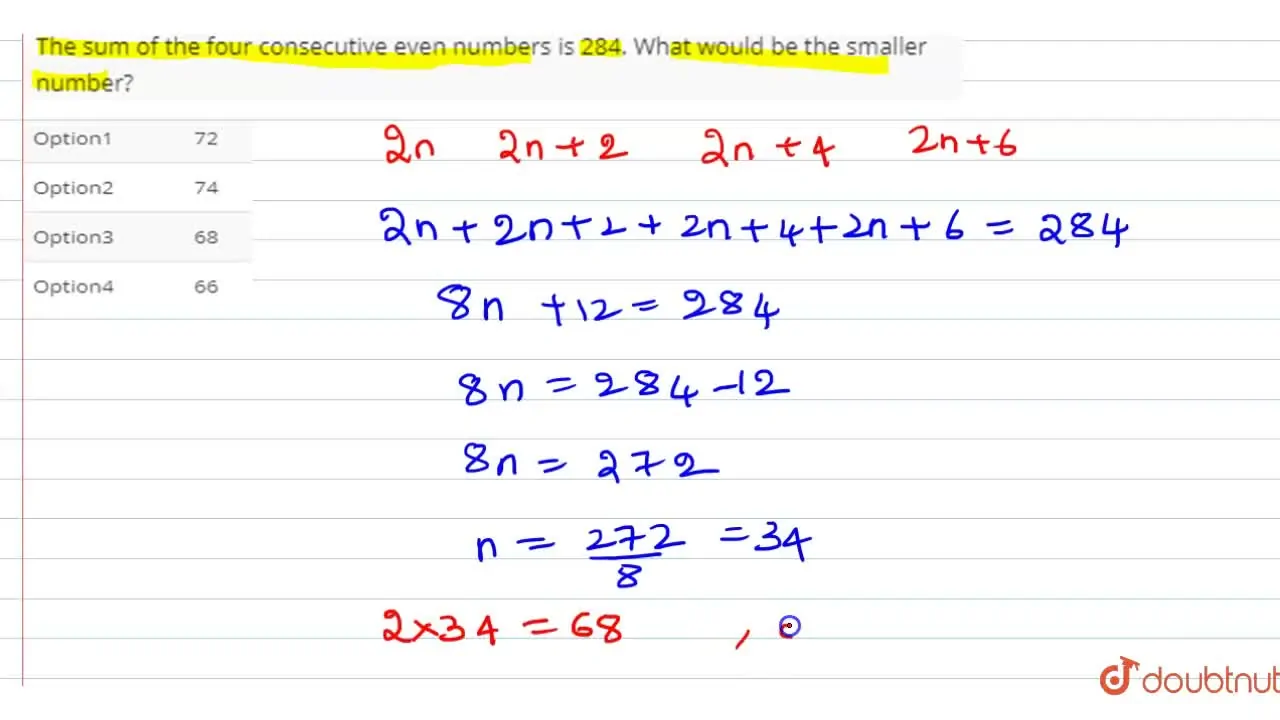 The sum of the four consecutive even numbers is 284. What would be the smaller
number?
Option1 72
Option2 74
Option3 68
Option4 66
2n 2n+2 2n+4 2n+6
2n+2n+2+2n+4+2n+6=284
8n +12=284
8n=284-12
8n=272
n=272/8=34
2×34=68 ,
doubtnut